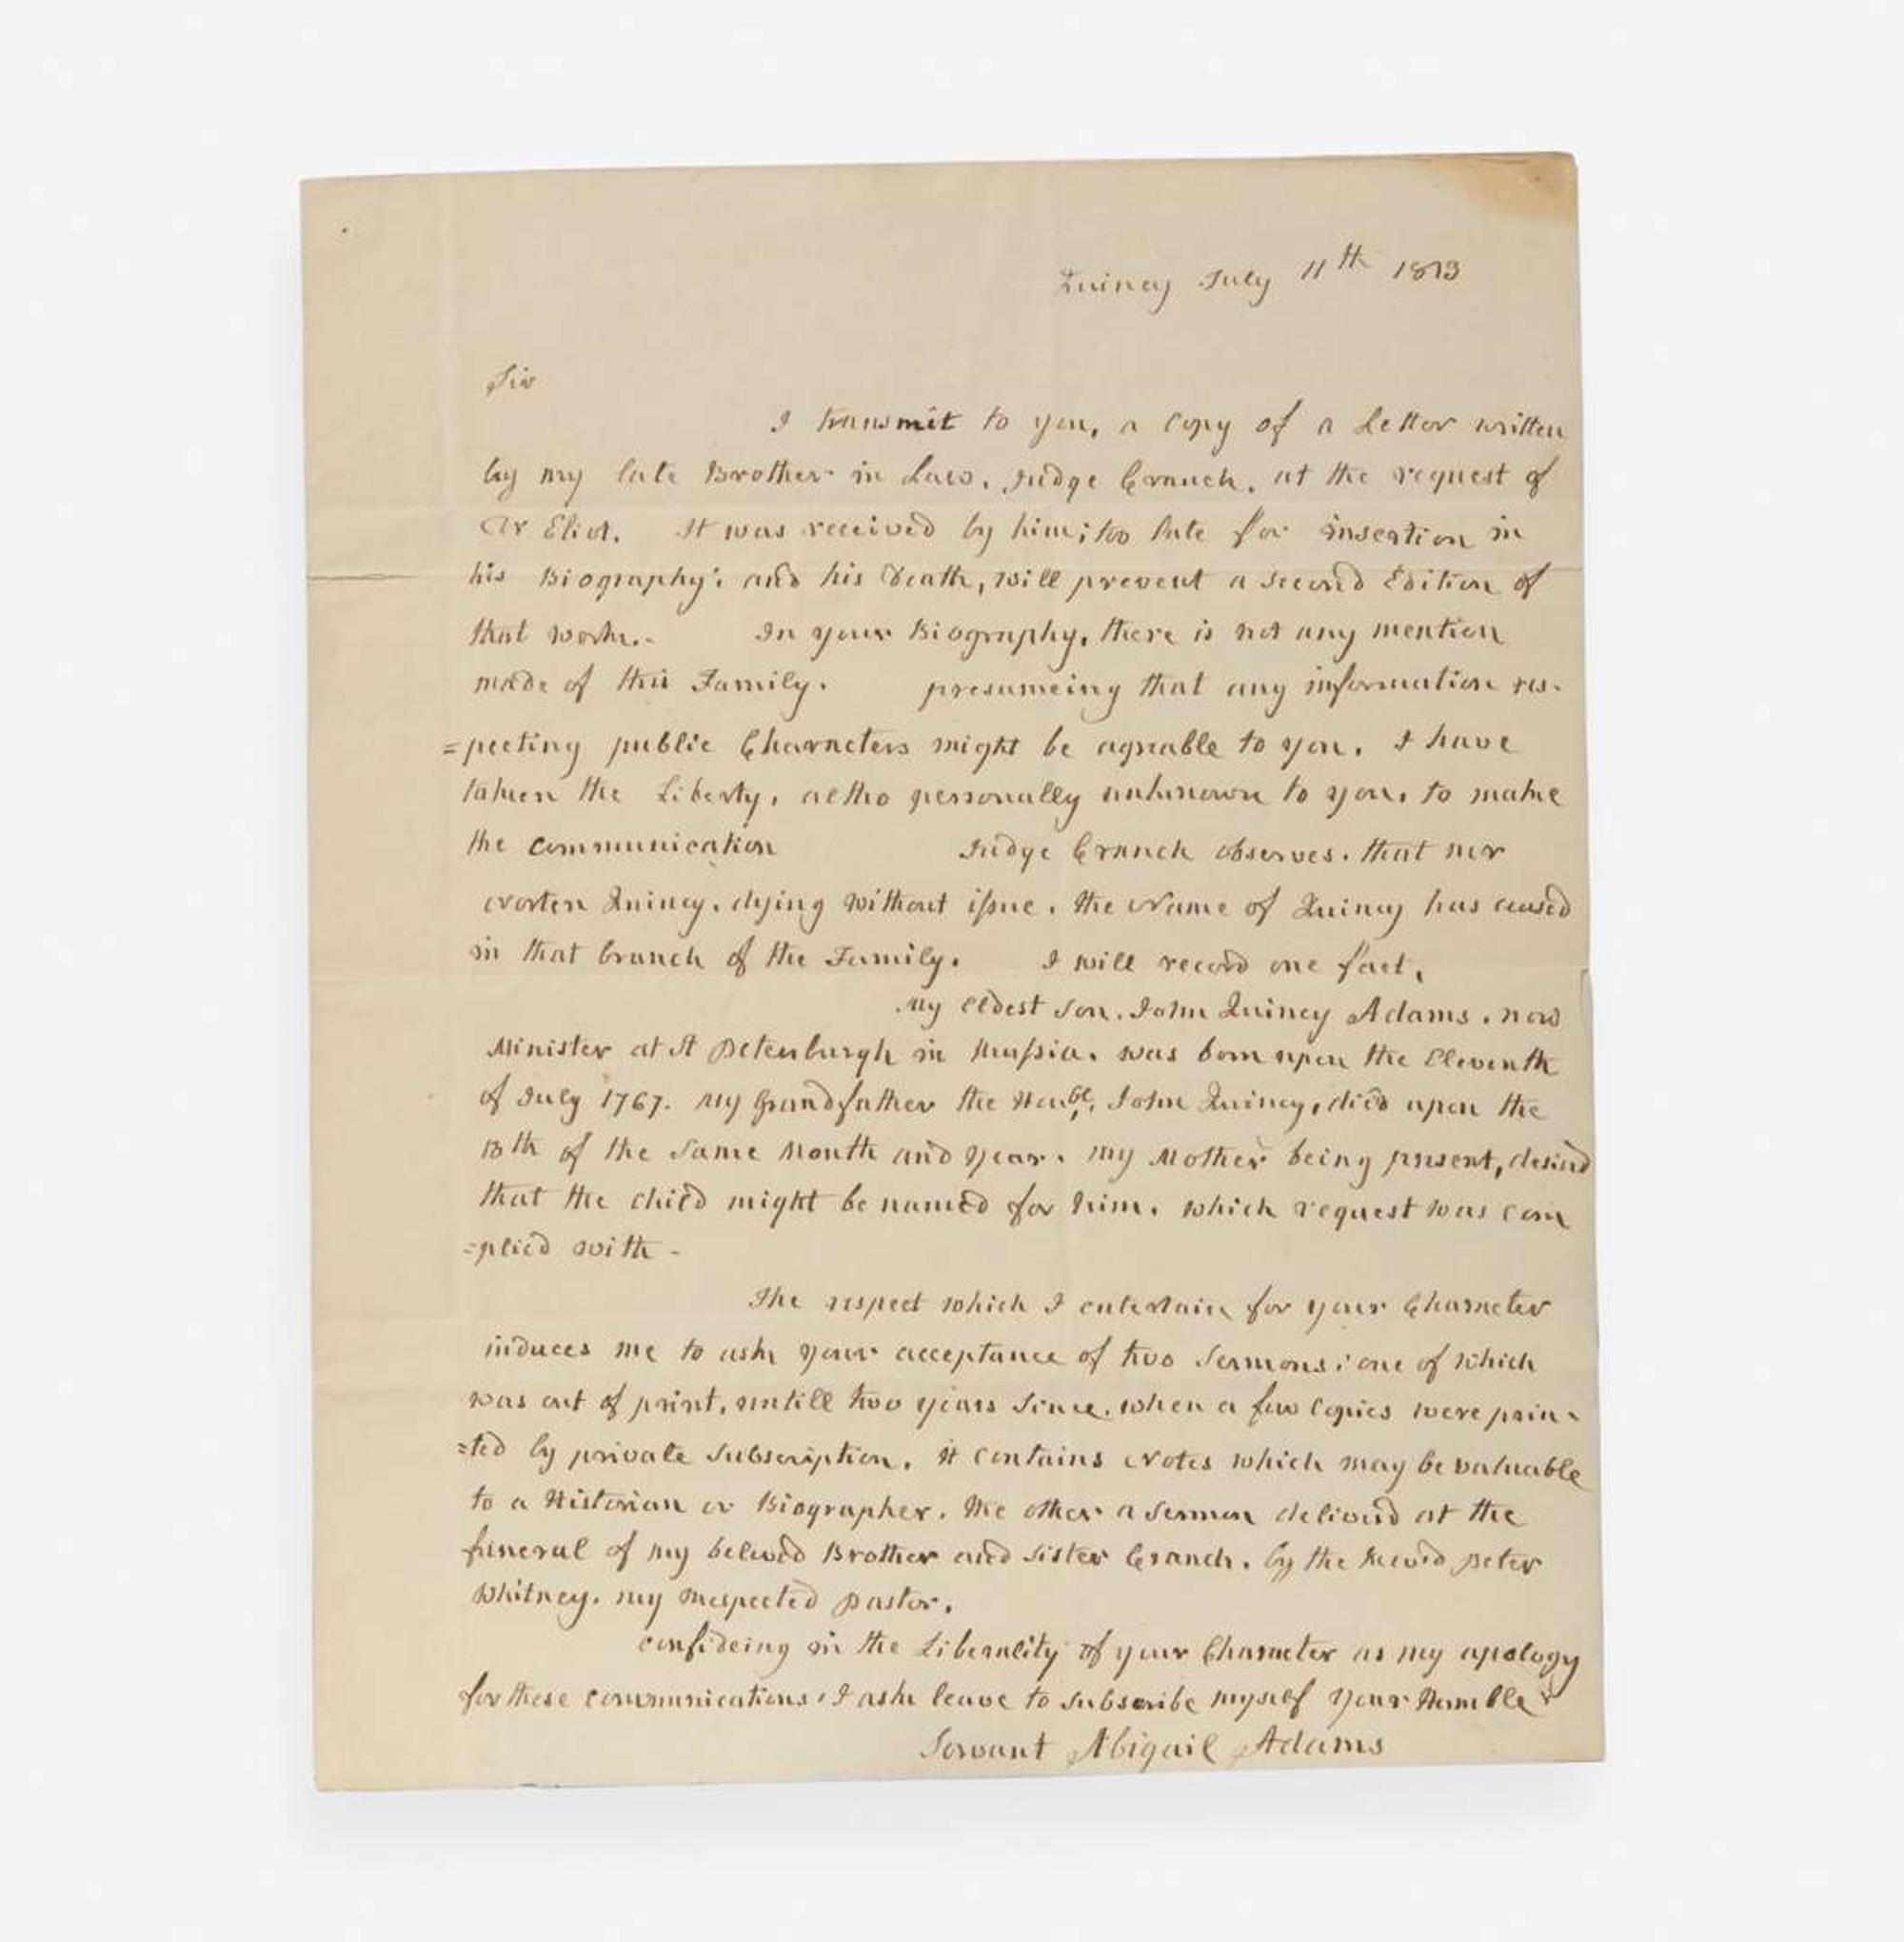 Quincy July 11th 1813
Sir
I transmit to you, a Copy of a Letter written
by my late Brother in Law, Judge Cranch, at the request of
Dr Eliot. It was received by him; too late for insertion in
his Biography; and his death, will prevent a second Edition of
that work.- In your Biography, there is not any mention
made of this Family. presumeing that any information res-
=pecting public Characters might be agreable to you, I have
taken the Liberty, altho personally unknown to you, to make
the communication Judge Cranch observes, that mr
Norten Quincy, dying without issue, the Name of Quincy has ceased
in that branch of the Family. I will record one fact,
My eldest Son, John Quincy Adams, now
Minister at St Petersburgh in Russia, was born upon the Eleventh
of July 1767. My Grandfather the Honble, John Quincy, died upon the
13th of the Same Month and year. my Mother being present, desired
that the child might be named for him, which request was com
=plied with -
The respect which I entertain for your Character
induces me to ask your acceptance of two Sermons; one of which
was out of print, untill two years Since, when a few Copies were prin-
=ted by private Subscription. it contains Notes which may be valuable
to a Historian or Biographer. the other a Sermon deliverd at the
funeral of my beloved Brother and Sister Cranch, by the Revd Peter
Whitney, my respected pastor.
confideing in the Liberality of your Character as my apology
for these communications, I ask leave to Subscribe myself your Humble
Servant Abigail Adams